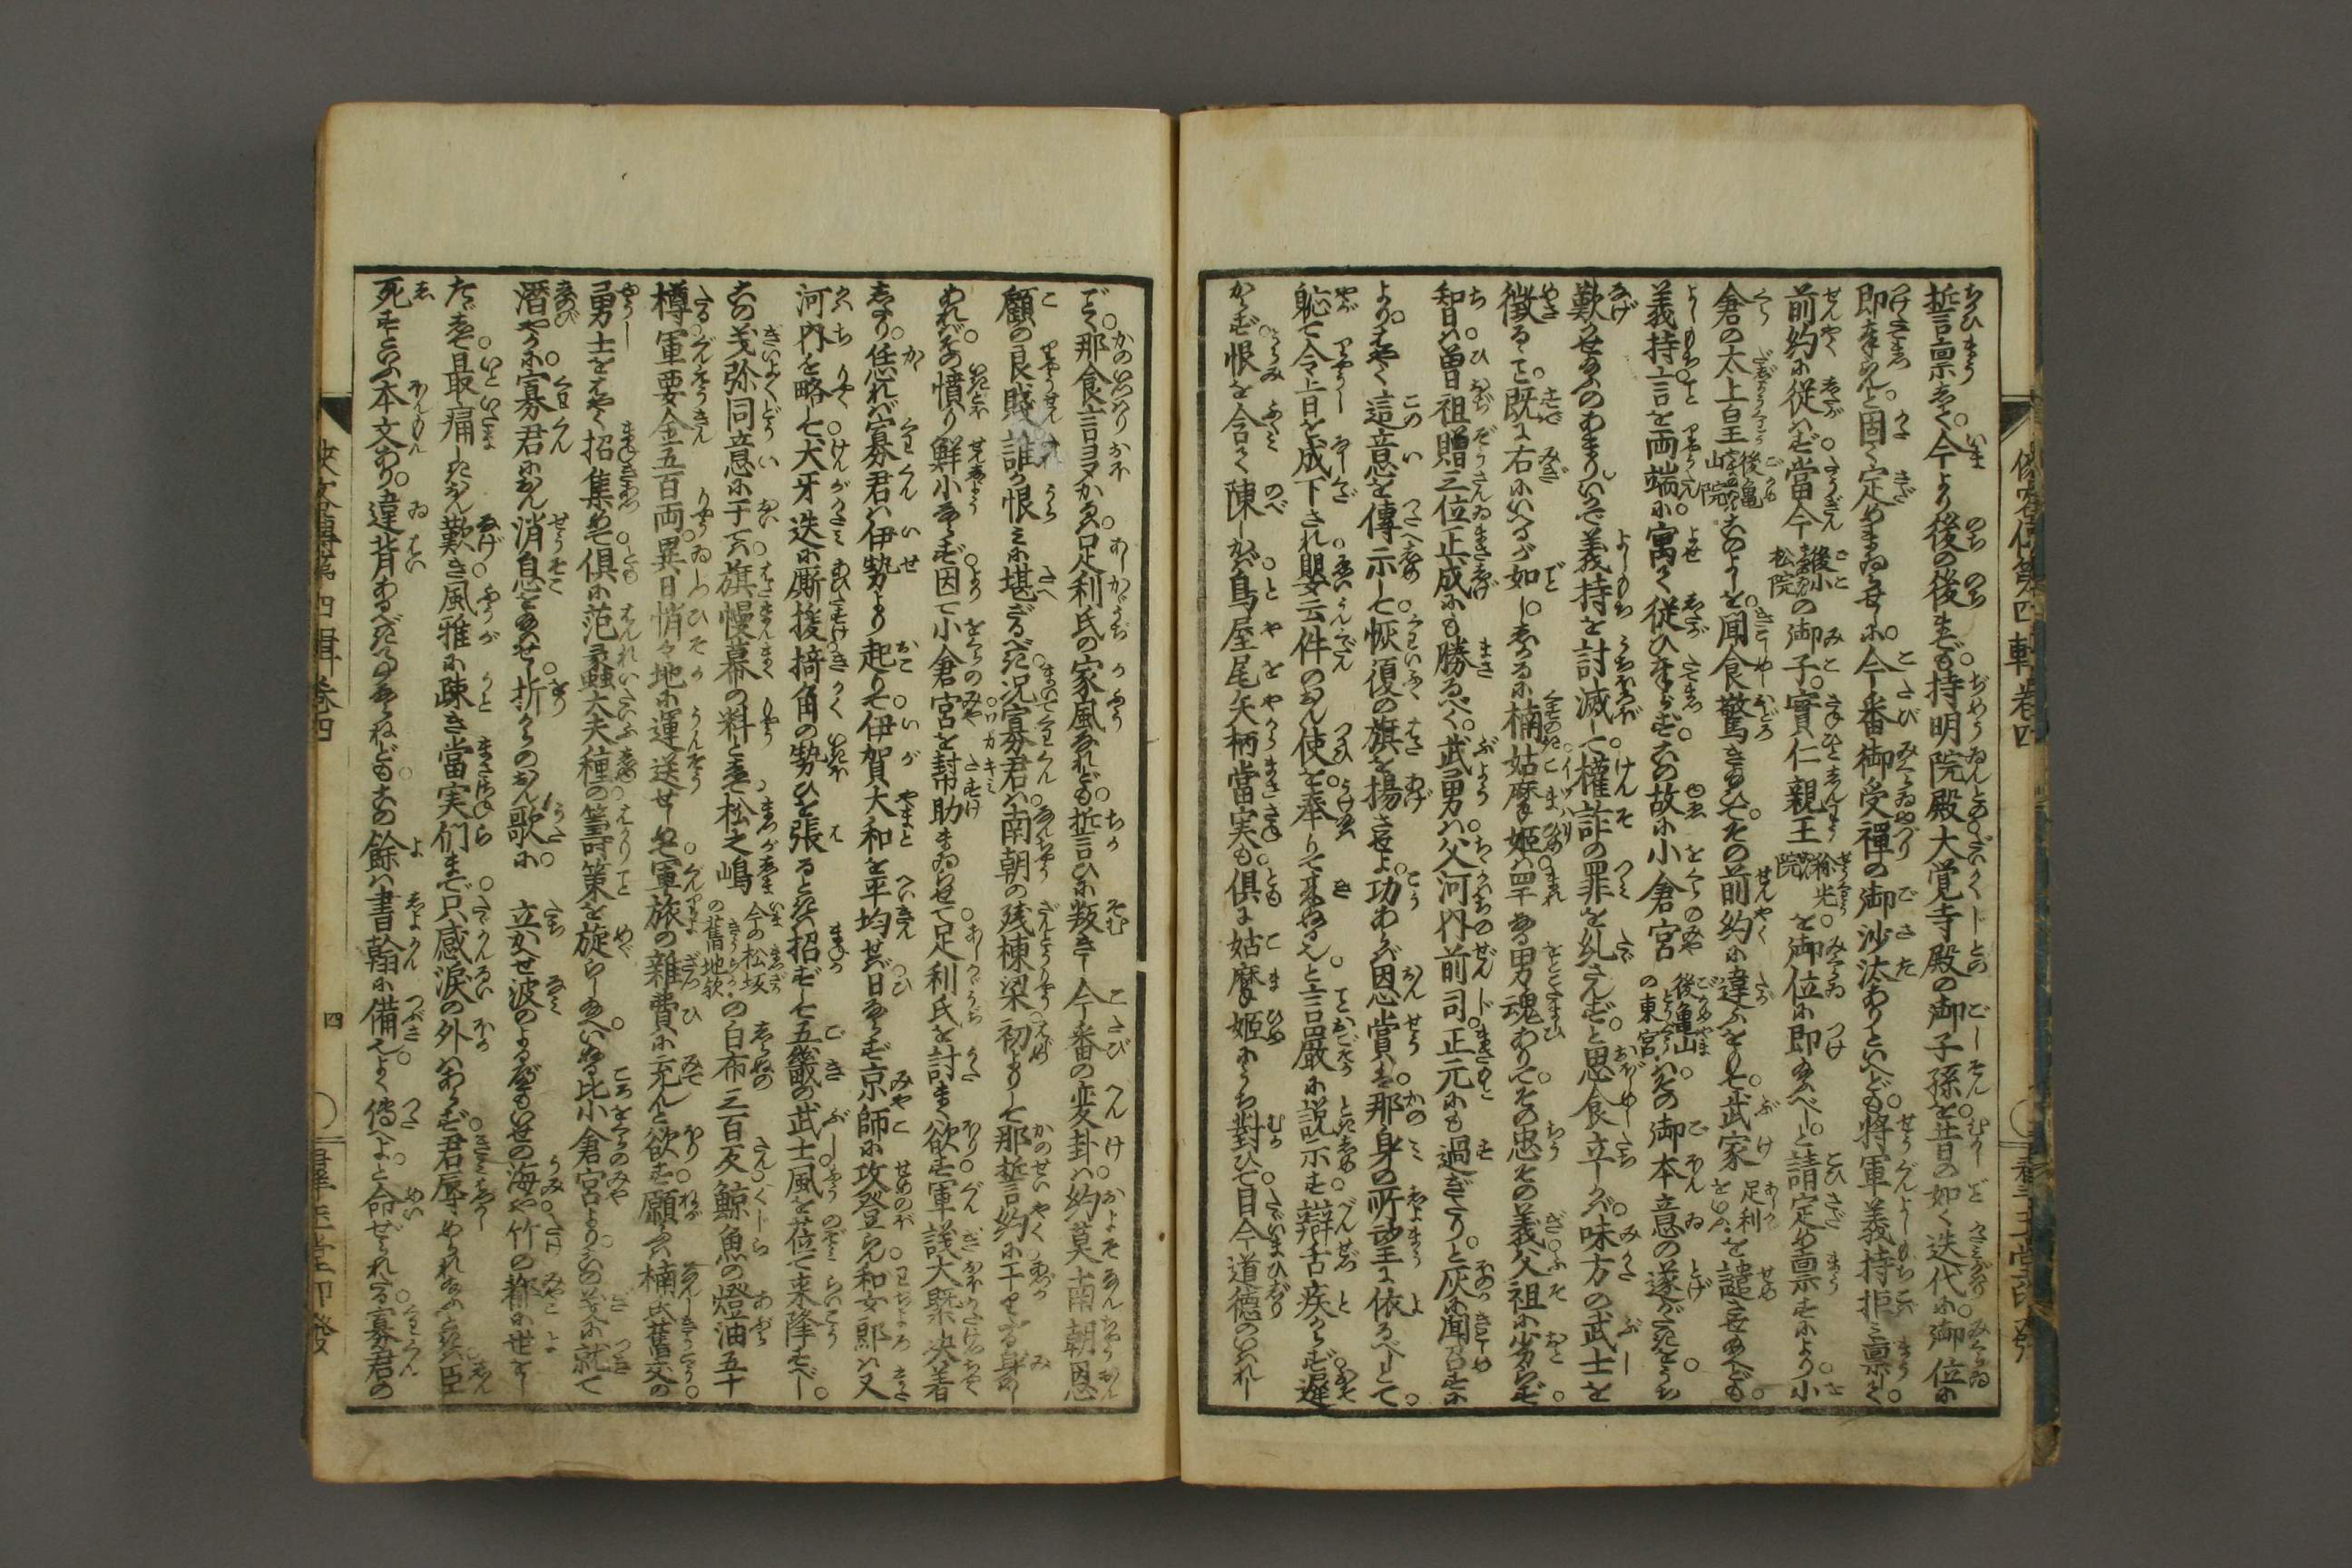 誓言稟して今より後の後まで持明院殿大覚寺殿の御子孫を昔の如く迭代に御位に
即奉らんと固く定めまゐらせしに今番御受禅の御沙汰ありといへども将軍義持拒み稟して
前約に従はず當今後小松院の御子實仁親王称光院を御位に即給ふべしと請定め稟すにより小
倉の太上皇後亀山院このよしを聞食驚き給ひてその前約に違ふをもて武家足利をいふを譴させ給へども
義持言を両端に寓て従ひ奉らずこの故に小倉宮後亀山の東宮はその御本意の遂がたきをうち
歎かせ給ふのあまりいかで義持を討滅して權詐の罪を糺さんずと思食立しかば味方の武士を
徴るゝこと既に右にいへるが如ししかるに楠姑摩姫は罕なる男魂ありてその忠その義父祖に劣らず
智は曽祖贈三位正成にも勝るべく武勇は父河内前司正元にも過ぎたりと灰に聞召すに
よりはやく這意を傳示して恢復の旗を揚させよ功あらば恩賞は那身の所望に依るべしとて
恥て今上日を成下され
件のおん使を奉りて来ぬるなれと言厳に説示す辯舌疾からず遅
からず恨を含て陳しかば鳥屋尾矢柄當実も倶に姑摩姫にうち對ひて目今道徳のいはれし
ごく那食言ヨマかるは足利氏の家風なれども誓ひに叛きし今番の変卦は約莫南朝恩
顧の良賤誰か恨みに堪ざるべき況寡君は南朝の残棟梁初よりして那誓約に干りたる身にし
あればその憤り鮮小ならず因て小倉宮を幇助まゐらせて足利氏を討まく欲す軍議大槩決着
しなり恁れば寡君は伊勢より起りて伊賀大和を平均せば日ならず京師に攻登らん和女郎は又
河内を略して犬牙迭に厮援掎角の勢ひを張るときは招ずして五畿の武士風を望て来降すべし
この義弥同意に于ては旗幔幕の料として松之嶋今の松坂の舊地歟の白布三百反鯨魚の燈油五十
樽軍要金五百両異日悄々地に運送せしめて軍旅の雑費に充んと欲す願ふは楠氏舊交の
勇士をはやく招集めて倶に范蠡大夫種の籌策を旋らし給へいぬる比小倉宮よりこの義に就て
潜やかに寡君におん消息を給はせし折からのおん歌に　立かへせ波のよるべもいせの海や竹の都に世をし
たずは最痛したおん歎き風雅に疎き當実們まで只感涙の外はあらず君辱められ給ふときは臣
死すといふ本文あり違背あるべきにあらねどもこの餘は書翰に備なりよく傳へよと命ぜられたる寡君の
俠客傳第四輯巻四
四